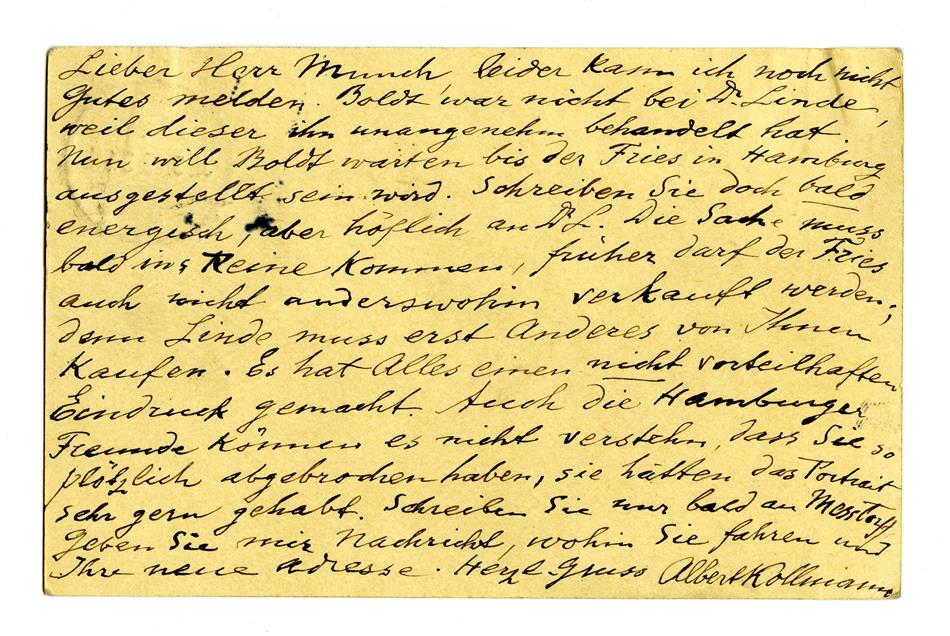 Lieber Herr Munch, leider kann ich noch nicht
Gutes melden. Boldt war nicht bei Dr. Linde,
weil dieser ihn unangenehm behandelt hat.
Nun will Boldt warten bis der Fries in Hamburg
ausgestellt sein wird. Schreiben Sie doch bald
energisch, aber höflich an Dr L. Die Sache muss
bald ins Reine kommen, früher darf der Fries
auch nicht anderswohin verkauft werden;
denn Linde muss erst Anderes von Ihnen
kaufen. Es hat Alles einen nicht vorteilhaften
Eindruck gemacht. Auch die Hamburger
Freunde können es nicht verstehn, dass Sie so
plötzlich abgebrochen haben, sie hätten das Portrait
sehr gern gehabt. Schreiben Sie nur bald an Messtorff/
Geben Sie mir Nachricht, wohin Sie fahren und
Ihre neue Adresse. Herzl Gruss Albert Kollmann